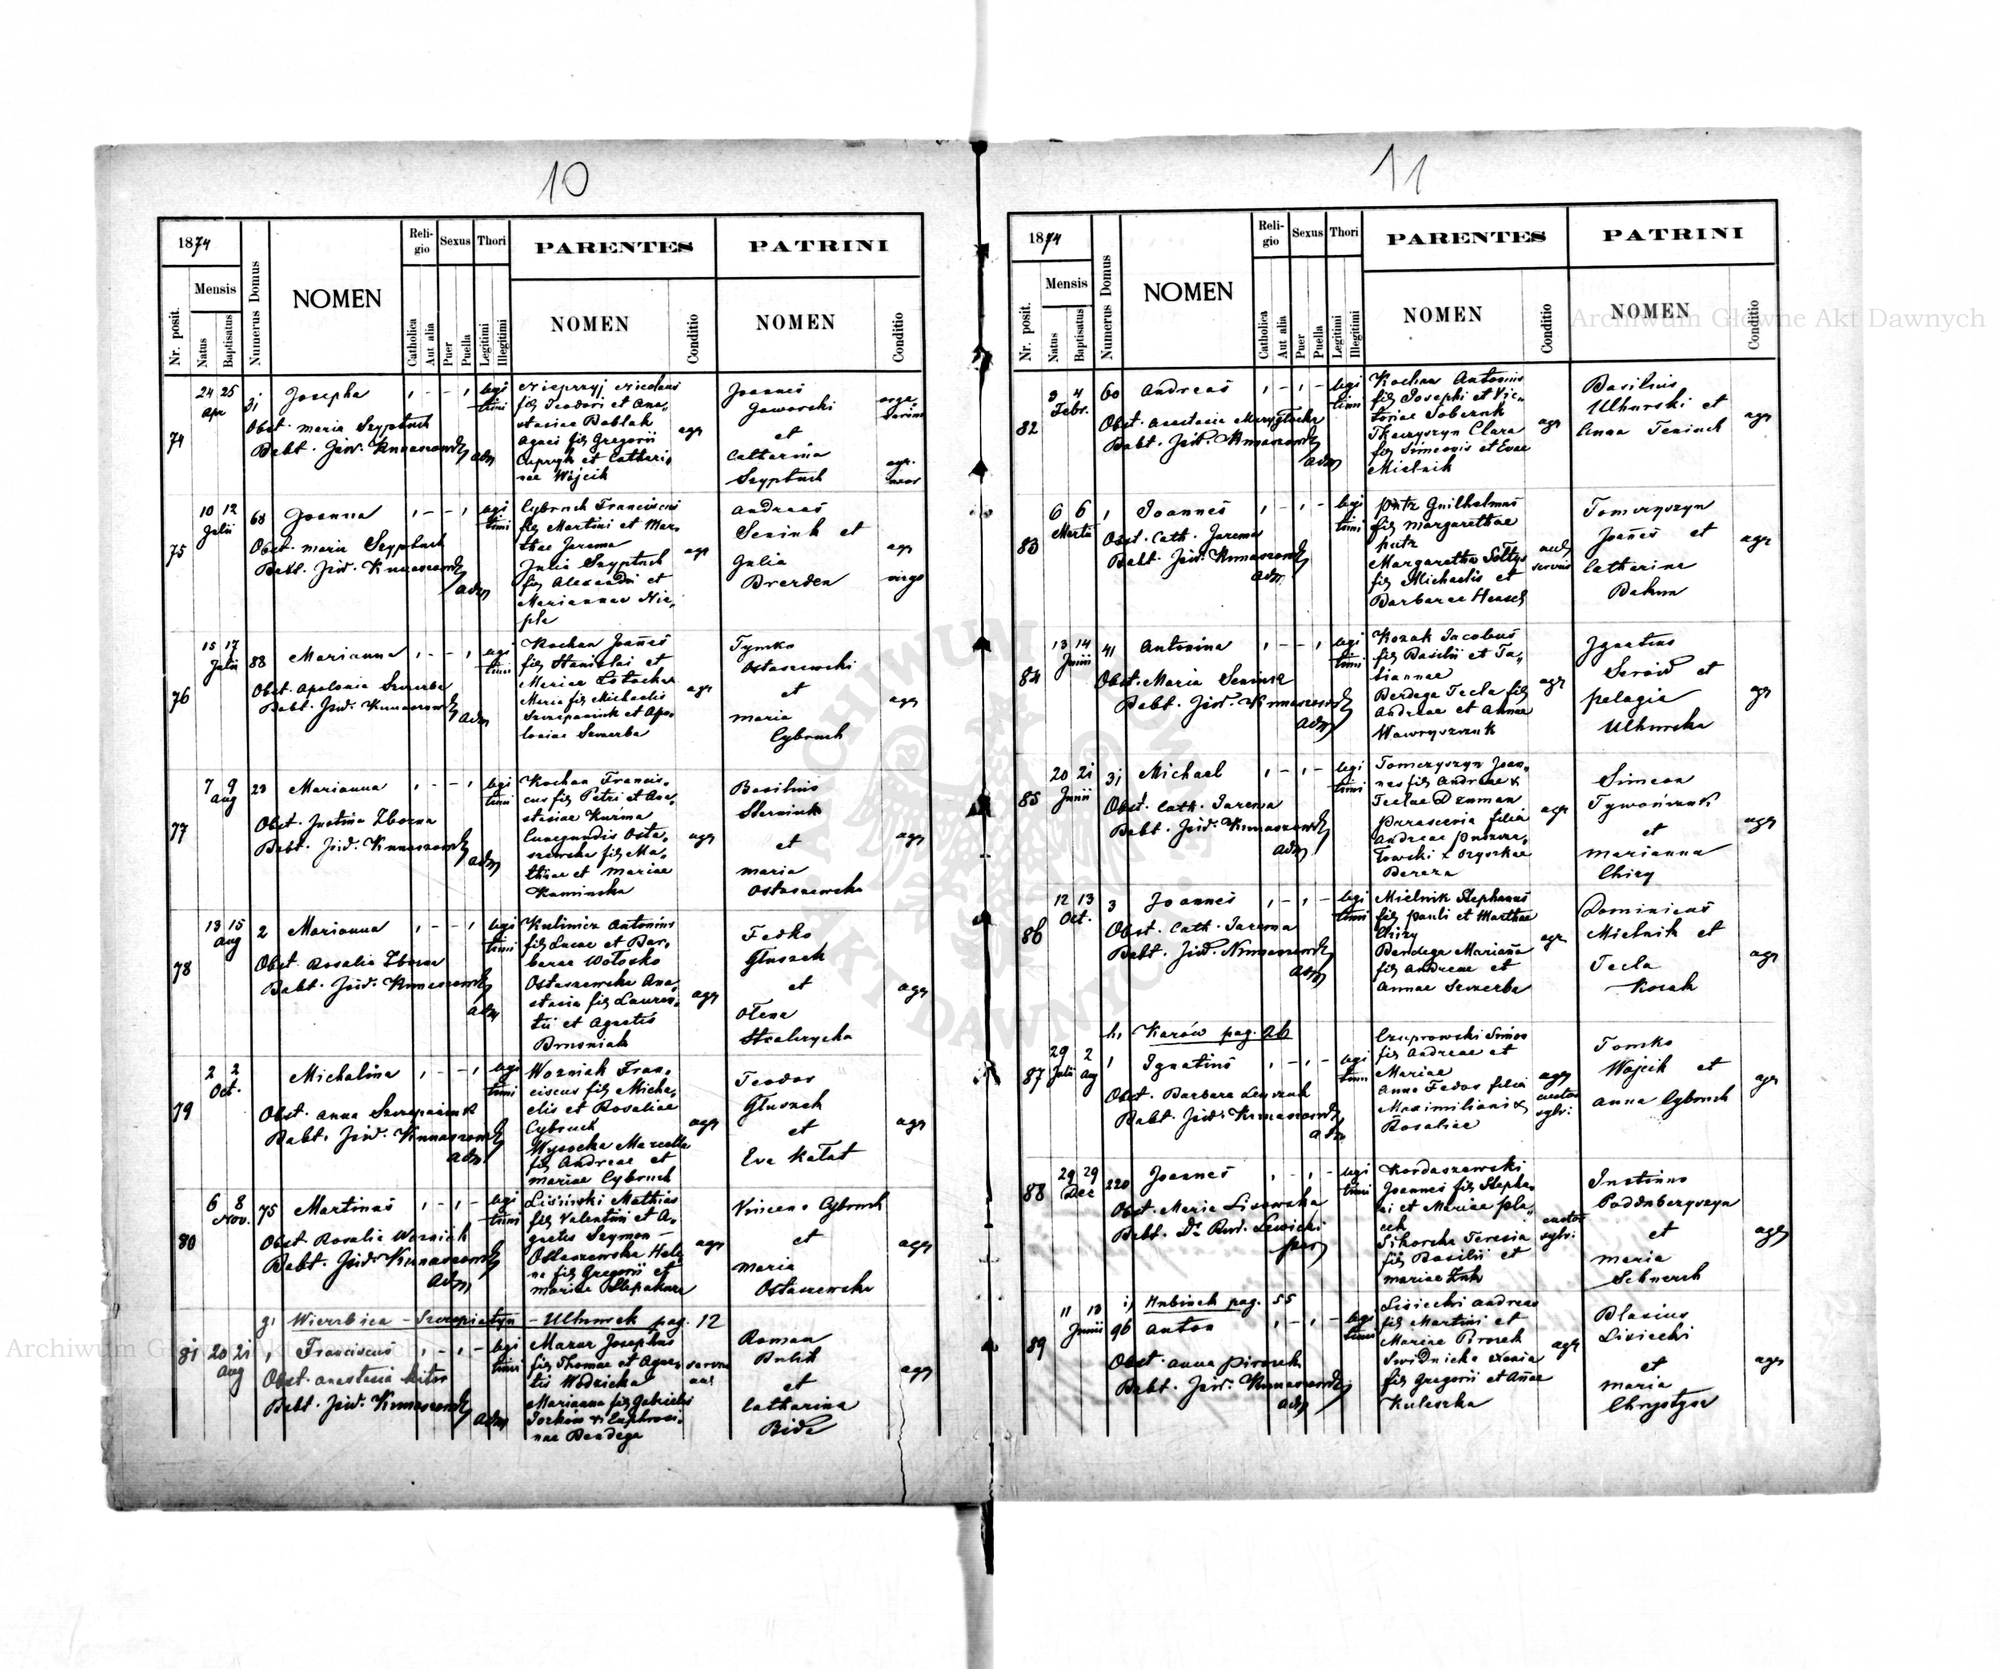 10
1874
Reli-
gio
Sexus
Thori
PARENTES
PATRINI
Nr. posit.
Mensis
Natus
Baptisatus
Numerus Domus
NOMEN
Catholica
Aut alia
Puer
Puella
Legitimi
Illegitimi
NOMEN
Conditio
NOMEN
Conditio
74
24 25
Apr
31
Josepha
Obst. Maria Szyptuch
Babt. Jzid. Kunaszowski
adm
legi
timi
Nieprzyj Nicolaus
fil Teodori et Ana-
stasiae Bablak
Agnes fil Gregorii
Cupryk et Cathari-
nae Wojcik
agr
Joannes
Jaworski
et
Catharina
Szyptuch
75
10 12
Julii
68
Joanna
Obst. Maria Szyptuch
Babt. Jzid. Kunaszowski
adm
legi
timi
Cybruch Franciscus
fil Martini et Mar-
thae Jarema
Julia Szyptuch
fil Alexandri et
Mariannae Nie-
pla
agr
Andreas
Seniuk et
Julia
Brerden
agr
virgo
76
15 17
Julii
88
Marianna
Obst. Apolonia Szczerba
Babt. Jzid. Kunaszowski
adm
legi
timi
Kochan Joañes
fil Stanislai et
Mariae Lotocka
Maria fil Michaelis
Szczepaniuk et Apo-
loniae Szczerba
agr
Tymko
Ostaszewski
et
Maria
Cybruch
agr
77
7 9
Aug
23
Marianna
Obst. Justina Zborna
Babt. Jzid. Kunaszowski
adm
legi
timi
Kochan Francis-
cus fil Petri et Ana-
stasiae Kurma
Cunegundis Osta-
szewska fil Ma-
thiae et Mariae
Kaminska
agr
Basilius
Sterniuk
et
Maria
Ostaszewska
agr
78
13 15
Aug
2
Marianna
Obst. Rosalia Zborna
Babt. Jzid. Kunaszowski
adm
legi
timi
Kulinicz Antonius
fil Lucae et Bar-
barae Wołosko
Ostaszewska Ana-
stasia fil Lauren-
tii et Agnetis
Brusniak
agr
Fedko
Gluszek
et
Olena
agr
79
2 2
Oct.
Michalina
Obst. Anna Szczepaniuk
Babt. Jzid. Kunaszowski
adm
legi
timi
Wozniak Fran-
ciscus fil Micha-
elis et Rosaliae
Cybruch
Wysocka Marcella
fil Andreae et
Mariae Cybruch
agr
Teodor
Gluszek
et
Eva Kałat
agr
80
6 8
Nov.
75
Martinus
Obst. Rosalia Wozniak
Babt. Jzid. Kunaszowski
adm
legi
timi
Lisinski Mathias
fil Valentini et A-
gnetis Szymon
Ostaszewska Hele-
na fil Gregorii et
Mariae
agr
Vincens Cybruch
et
Maria
Ostaszewska
agr
g, Wierzbica - Szczepiatyn - Ulhowek pag. 12
81
20 21
Aug
1
Franciscus
Obst. Anastasia Kitor
Babt. Jzid. Kunaszowski
adm
legi
timi
Mazur Josephus
fil Thomae et Agne-
tis Wodzicka
Marianna fil Gabrielis
et Euphrosi-
nae Bendega
Roman
Bulik
et
Catharina
Bida
agr
11
1874
Reli-
gio
Sexus
Thori
PARENTES
PATRINI
Nr. posit.
Mensis
Natus
Baptisatus
Numerus Domus
NOMEN
Catholica
Aut alia
Puer
Puella
Legitimi
Illegitimi
NOMEN
Conditio
NOMEN
Conditio
82
3 4
Febr.
60
Andreas
Obst. Anastasia
Babt. Jzid. Kunaszowski
adm
legi
timi
Kochan Antonius
fil Josephi et Vic-
toriae Soberuk
Tkaczyszyn Clara
fil Simeonis et Evae
Mielnik
agr
Basilius
Ulhurski et
Anna Teniuch
agr
83
6 6
Martii
1
Joannes
Obst. Cath. Jarema
Babt. Jzid. Kunaszowski
adm
legi
timi
Putz Guilhelmus
fil Margarethae
Putz
Margaretha Soltys
fil Michaelis et
Barbarae
Tomczyszyn
Joañes et
Catharina
Bahun
agr
84
13 14
Junii
41
Antonina
Obst. Maria Seniuk
Babt. Jzid. Kunaszowski
adm
legi
timi
Kozak Jacobus
fil Basilii et Ta-
tiannae
Bendega Tecla fil
Andreae et Annae
Wawryszczuk
agr
Ignatius
Serōid et
Pelagia
Ulhurska
agr
85
20 21
Junii
31
Michael
Obst. Cath. Jarema
Babt. Jzid. Kunaszowski
adm
legi
timi
Tomczyszyn Joan-
nes fil Andreae &
Teclae Denman
Parascevia filia
Andreae Puszka-
łowski & Oryszkae
Bereza
agr
Simeon
Tywończuk
et
Marianna
Chizy
agr
86
12 13
Oct.
3
Joannes
Obst. Cath. Jarema
Babt. Jzid. Kunaszowski
adm
legi
timi
Mielnik Stephanus
fil Pauli et Marthae
Chizy
Bendega Mariaña
fil Andreae et
Annae Szczerba
agr
Dominicus
Mielnik et
Tecla
Kozak
agr
h, Karów pag. 26
87
29 2
Julii Aug
1
Ignatius
Obst. Barbara Lewczuk
Babt. Jzid. Kunaszowski
adm
legi
timi
Czuprowski Simon
fil Andreae et
Mariae
Anna Fedos filia
Maximiliani &
Rosaliae
agr
custos
sylv.
Tomko
Wojcik et
Anna Cybruch
agr
88
29 29
Dec
220
Joannes
Obst. Maria Lisowska
Babt. Dr. Rud. Lewicki
par
legi
timi
Kordaszewski
Joannes fil Stepha-
ni et Mariae Pla-
cek
Sikorska Teresia
fil Basilii et
Mariae Zuk
custos
sylv.
Justinus
Poddubergszyn
et
Maria
agr
i, Hubinek pag. 55
89
11 18
Junii
96
Anton
Obst. Anna Pirozek
Babt. Jzid. Kunaszowski
adm
legi
timi
Lisiecki Andreas
fil Martini et
Mariae Pirozek
Swidnicka Xenia
fil Gregorii et Añae
Kuleszka
agr
Blasius
Lisiecki
et
Maria
Chrystyna
agr
Archiwum Główne Akt Dawnych
Archiwum Główne Akt Dawnych
ARCHIWUM GŁÓWNE AKT DAWNYCH